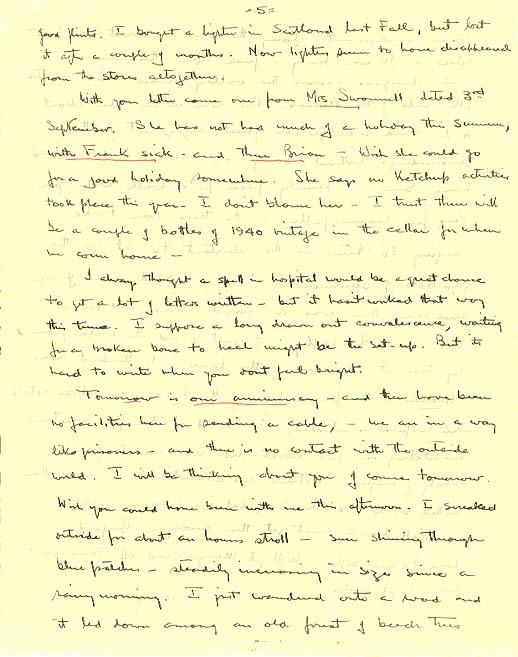 - 5 -
good flints. I bought a lighter in Scotland last Fall, but lost
it after a couple of months. Now lighters seem to have disappeared
from the stores altogether.
With your letter came one from Mrs. Swonnell dated 3rd
September. She has not had much of a holiday this summer,
with Frank sick - and then Brian - Wish she could go
for a good holiday somewhere. She says no Ketchup activities
took place this year - I don't blame her - I trust there will
be a couple of bottles of 1940 vintage in the cellar for when
we come home -
I always thought a spell in hospital would be a great chance
to get a lot of letters written - but it hasn't worked that way
this time. I suppose a long drawn out convalescence, waiting
for a broken bone to heal might be the set-up. But its
hard to write when you dont feel bright.
Tomorrow is our anniversary - and there have been
no facilities here for sending a cable, - we are in a way
like prisoners - and there is no contact with the outside
world. I will be thinking about you of course tomorrow.
Wish you could have been with me this afternoon. I sneaked
outside for about an hours stroll - sun shining through
blue patches - steadily increasing in size since a
rainy morning. I just wandered onto a road and
it led down among an old forest of beech trees